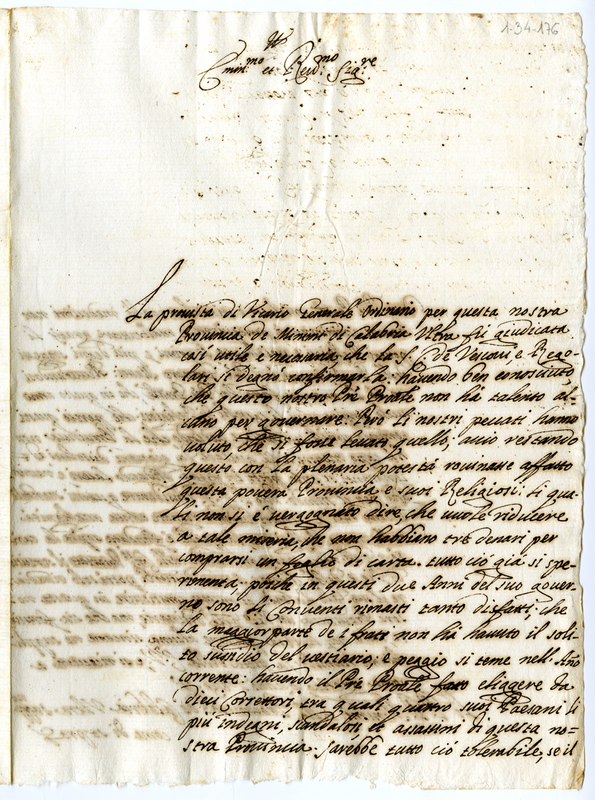 1-34-176
Emin.mo et Reu.mo Sig.re
La prouista di Vicario Generale Ordinario per questa nostra
Prouincia de Minimi di Calabria Ultra fù giudicata
così utile e necessaria che la S. C. de Vescoui e Rego-
lari si degnò confirmarla. hauendo ben conosciuto,
che questo nostro Pre Prontle non ha talento al-
cuno per gouernare: Però li nostri peccati hanno
uoluto, che si fosse leuato quello, acciò restando
questo con la plenaria potestà rouinasse affatto
questa pouera Prouincia e suoi Religiosi: li qua-
li non si è uergognato dire, che uuole riducere
a tale miseria, che non habbiano trè denari per
comprarsi un foglio di carta. tutto ciò già si spe-
rimenta, poiche in questi due Anni del suo gouer-
no sono li Conuenti rimasti tanto disfatti, che
la maggior parte de i frati non hà hauuto il soli-
to sussidio del vestiario, e peggio si teme nell' Año
corrente: hauendo il Pre Pronle fatto eliggere da
dieci Correttori, tra quali quattro suoi Paesani li
più indegni, scandalosi et assassini di questa no-
stra Prouincia. sarebbe tutto ciò tolerabile, se il